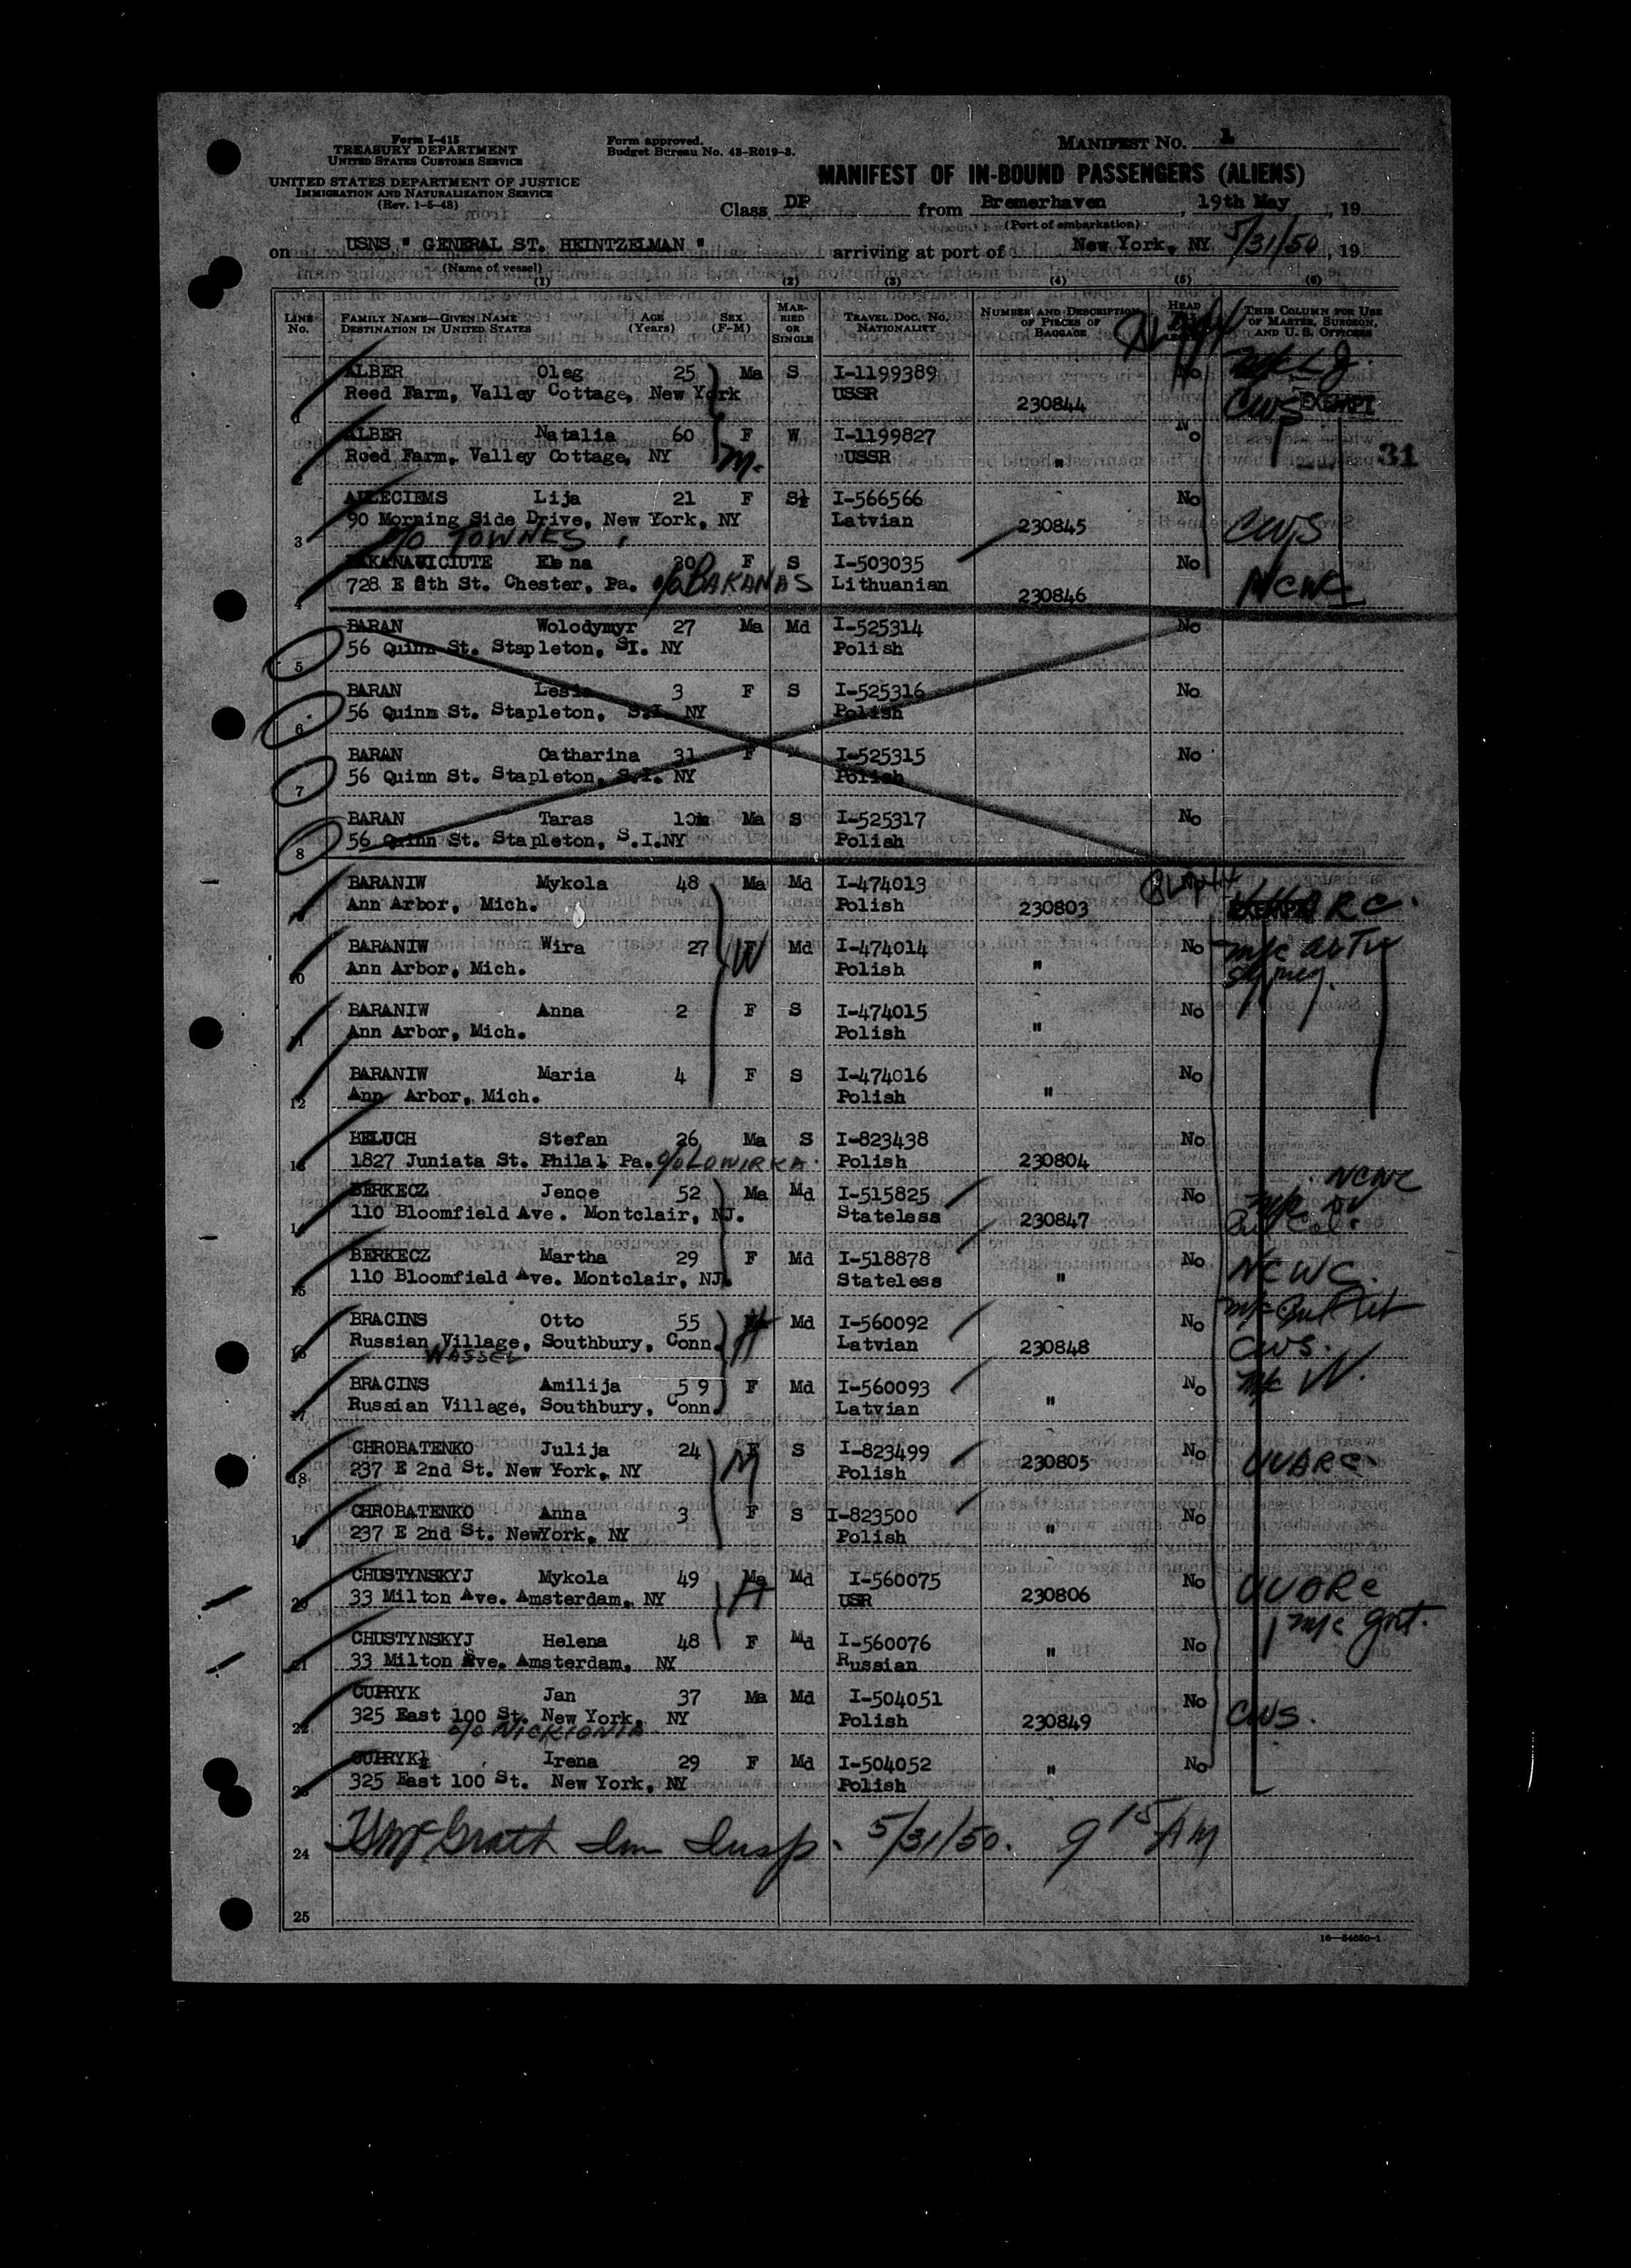 Form I-415
TREASURY DEPARTMENT
UNITED STATES CUSTOMS SERVICE
UNITED STATES DEPARTMENT OF JUSTICE
IMMIGRATION AND NATURALIZATION SERVICE
(Rev. 1-5-48)
Form approved.
Budget Bureau No. 43-R019-3.
MANIFEST NO. 1
MANIFEST OF IN-BOUND PASSENGERS (ALIENS)
Class DP from Bremerhaven, 19th May, 19
(Port of embarkation)
on USNS " GENERAL ST. HEINTZELMAN " arriving at port of New York, NY 5/31/50, 19
(Name of vessel)
(1) (2) (3) (4) (5) (6)
LINE No. FAMILY NAME—GIVEN NAME DESTINATION IN UNITED STATES AGE (Years) SEX (F-M) MARRIED OR SINGLE TRAVEL DOC. NO. NATIONALITY NUMBER AND DESCRIPTION OF PIECES OF BAGGAGE HEAD THIS COLUMN FOR USE OF MASTER, SURGEON, AND U. S. OFFICERS
1 ALBER Oleg 25 Ma S I-1199389 No
Reed Farm, Valley Cottage, New York USSR 230844 CWS EXEMPT
2 ALBER Natalia 60 F W I-1199827 No
Reed Farm, Valley Cottage, NY USSR " 31
3 ALLECIEMS Lija 21 F S I-566566 No
90 Morning Side Drive, New York, NY Latvian 230845 CWS
c/o TOWNES
4 BAKANAUICIUTE Elena 30 F S I-503035 No
728 E 8th St. Chester, Pa. c/o BAKANAS Lithuanian 230846 NCWC
5 BARAN Wolodymyr 27 Ma Md I-525314 No
56 Quinn St. Stapleton, SI. NY Polish
6 BARAN Lesia 3 F S I-525316 No
56 Quinn St. Stapleton, S.I. NY Polish
7 BARAN Catharina 31 F I-525315 No
56 Quinn St. Stapleton, S.I. NY Polish
8 BARAN Taras 10m Ma S I-525317 No
56 Quinn St. Stapleton, S.I.NY Polish
9 BARANIW Mykola 48 Ma Md I-474013
Ann Arbor, Mich. Polish 230803
10 BARANIW Wira 27 F Md I-474014 No
Ann Arbor, Mich. Polish "
11 BARANIW Anna 2 F S I-474015 No
Ann Arbor, Mich. Polish "
12 BARANIW Maria 4 F S I-474016 No
Ann Arbor, Mich. Polish "
13 BELUCH Stefan 26 Ma S I-823438 No
1827 Juniata St. Philal Pa. c/o LOWIRKA Polish 230804
14 BERKECZ Jenoe 52 Ma Md I-515825 No NCWC
110 Bloomfield Ave. Montclair, NJ. Stateless 230847
15 BERKECZ Martha 29 F Md I-518878 No NCWC.
110 Bloomfield Ave. Montclair, NJ. Stateless "
16 BRACINS Otto 55 Md I-560092 No
Russian Village, Southbury, Conn. Latvian 230848 CWS.
WASSEL
17 BRACINS Amilija 59 F Md I-560093 No
Russian Village, Southbury, Conn. Latvian "
18 CHROBATENKO Julija 24 F S I-823499 No
237 E 2nd St. New York, NY Polish 230805 UUARC
19 CHROBATENKO Anna 3 F S I-823500 No
237 E 2nd St. NewYork, NY Polish "
20 CHUSTYNSKYJ Mykola 49 Ma Md I-560075 No UUARC
33 Milton Ave. Amsterdam, NY USR 230806
21 CHUSTYNSKYJ Helena 48 F Md I-560076 No
33 Milton Ave. Amsterdam, NY Russian "
22 CUPRYK Jan 37 Ma Md I-504051 No
325 East 100 St. New York, NY Polish 230849 CWS.
23 CUPRYK Irena 29 F Md I-504052 No
325 East 100 St. New York, NY Polish "
24 McGrath Im Insp. 5/31/50. 9 15 AM
25
16—54650-1